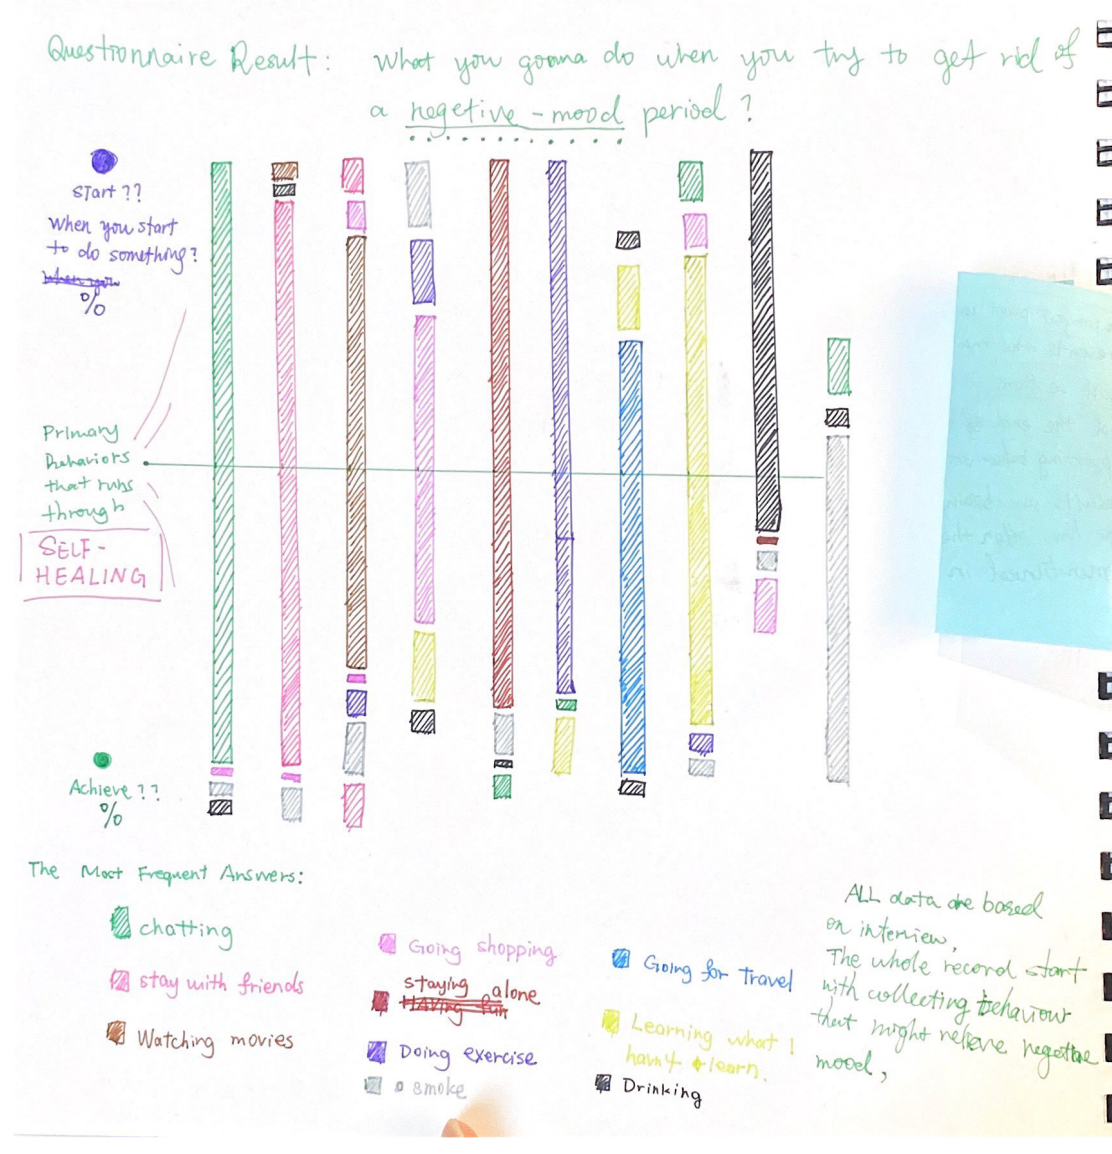 Questionnaire Result: What you gonna do when you try to get rid of
a negetive-mood period?
Start??
When you start
to do something?
%
Primary
behaviors
that runs
through
SELF-
HEALING
Achieve??
%
The Most Frequent Answers:
chatting
stay with friends
Watching movies
Going shopping
staying alone
Having fun
Doing exercise
smoke
Going for Travel
Learning what I
havn't learn.
Drinking
ALL data are based
on interview,
The whole record start
with collecting behaviour
that might relieve negative
mood,